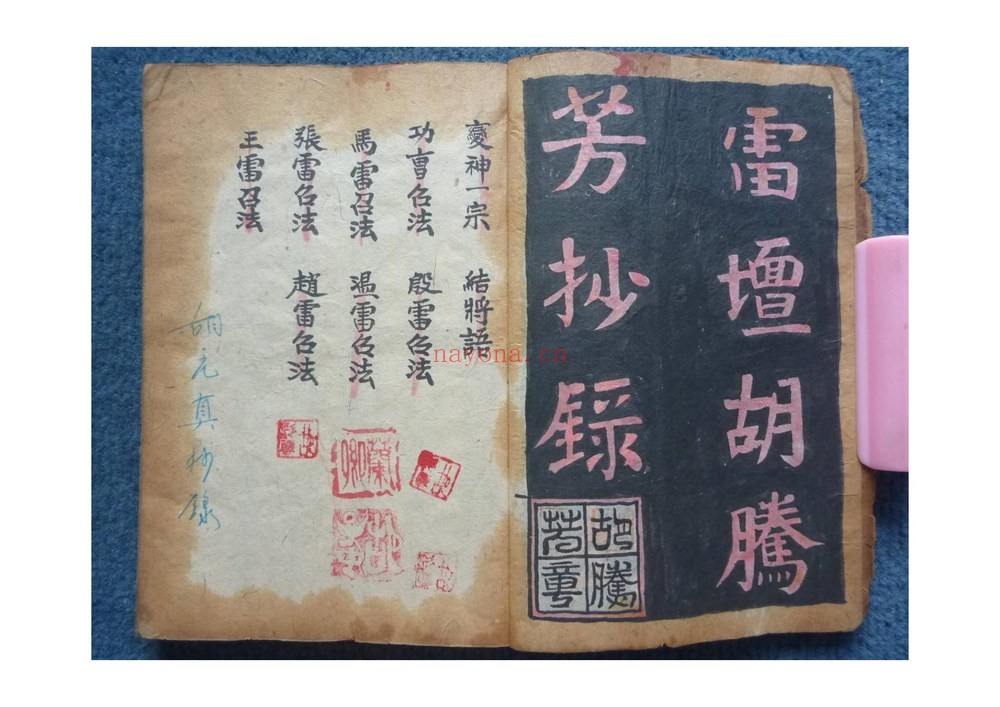 雷壇胡騰
芳抄錄
胡騰芳章
變神一宗 結將語
功曹召法 殷雷召法
馬雷召法 温雷召法
張雷召法 趙雷召法
王雷召法
胡元真抄錄
nayona.cn